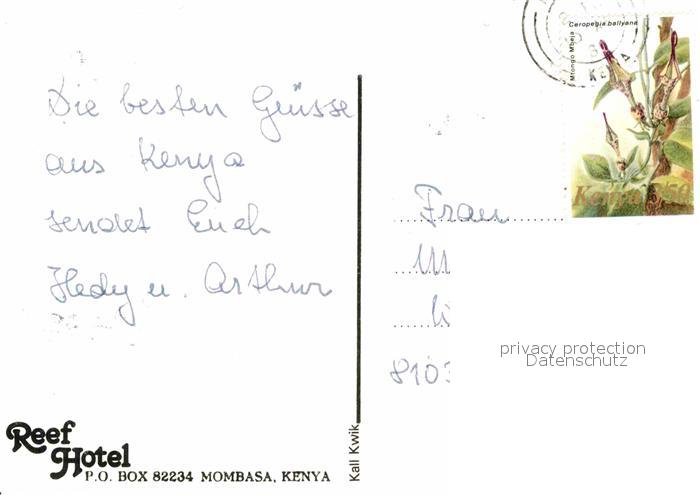 Die besten Grüsse
aus Kenya
sendet Euch
Hedy u. Arthur
Reef
Hotel
P.O. BOX 82234 MOMBASA, KENYA
Kall Kwik
Mfongo Mbeja
Ceropegia ballyana
Kenya 3/50
Frau
8103
privacy protection
Datenschutz